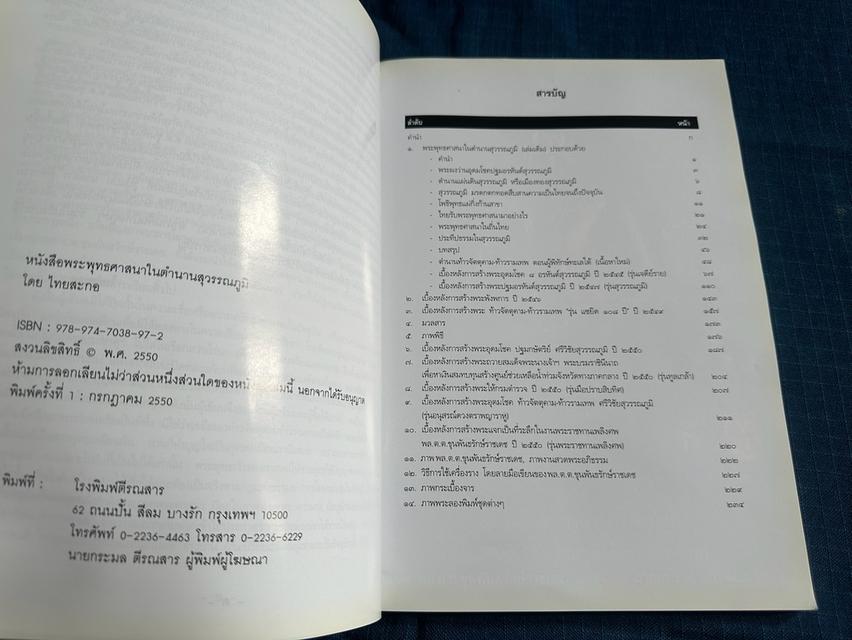 หนังสือพระพุทธศาสนาในตำนานสุวรรณภูมิ
โดย ไทยสะกอ
ISBN : 978-974-7038-97-2
สงวนลิขสิทธิ์ © พ.ศ. 2550
ห้ามการลอกเลียนไม่ว่าส่วนหนึ่งส่วนใดของหนังสือเล่มนี้ นอกจากได้รับอนุญาต
พิมพ์ครั้งที่ 1 : กรกฎาคม 2550
พิมพ์ที่ : โรงพิมพ์ตีรณสาร
62 ถนนปั้น สีลม บางรัก กรุงเทพฯ 10500
โทรศัพท์ 0-2236-4463 โทรสาร 0-2236-6229
นายกระมล ตีรณสาร ผู้พิมพ์ผู้โฆษณา
สารบัญ
ลำดับ หน้า
คำนำ ก
๑. พระพุทธศาสนาในตำนานสุวรรณภูมิ (เล่มเดิม) ประกอบด้วย
- คำนำ ๑
- พระผงว่านอุดมโชคปฐมอรหันต์สุวรรณภูมิ ๓
- ตำนานแผ่นดินสุวรรณภูมิ หรือเมืองทองสุวรรณภูมิ ๖
- สุวรรณภูมิ มรดกตกทอดสืบสานความเป็นไทยจนถึงปัจจุบัน ๘
- โพธิพุทธแผ่กิ่งก้านสาขา ๑๑
- ไทยรับพระพุทธศาสนามาอย่างไร ๒๑
- พระพุทธศาสนาในถิ่นไทย ๒๔
- ประทีปธรรมในสุวรรณภูมิ ๓๒
- บทสรุป ๔๖
- ตำนานท้าวจัตุคาม-ท้าวรามเทพ ตอนผู้พิทักษ์ทะเลใต้ (เนื้อหาใหม่) ๔๘
- เบื้องหลังการสร้างพระอุดมโชค ๘ อรหันต์สุวรรณภูมิ ปี ๒๕๔๕ (รุ่นเจดีย์ราย) ๖๗
- เบื้องหลังการสร้างพระปฐมอรหันต์สุวรรณภูมิ ปี ๒๕๔๗ (รุ่นสุวรรณภูมิ) ๑๑๐
๒. เบื้องหลังการสร้างพระพังพการ ปี ๒๕๔๖ ๑๔๓
๓. เบื้องหลังการสร้างพระ ท้าวจัตุคาม-ท้าวรามเทพ "รุ่น แซยิด ๑๐๘ ปี" ปี ๒๕๔๙ ๑๕๗
๔. มวลสาร ๑๗๓
๕. ภาพพิธี ๑๗๖
๖. เบื้องหลังการสร้างพระอุดมโชค ปฐมกษัตริย์ ศรีวิชัยสุวรรณภูมิ ปี ๒๕๕๐ ๑๘๗
๗. เบื้องหลังการสร้างพระถวายสมเด็จพระนางเจ้าฯ พระบรมราชินีนาถ
เพื่อหาเงินสมทบทุนสร้างศูนย์ช่วยเหลือน้ำท่วมจังหวัดทางภาคกลาง ปี ๒๕๕๐ (รุ่นทูลเกล้า) ๒๐๔
๘. เบื้องหลังการสร้างพระให้กรมตำรวจ ปี ๒๕๕๐ (รุ่นมือปราบสิบทิศ) ๒๐๗
๙. เบื้องหลังการสร้างพระอุดมโชค ท้าวจัตุคาม-ท้าวรามเทพ ศรีวิชัยสุวรรณภูมิ
(รุ่นอนุสรณ์ดวงตราพญาราหู) ๒๑๑
๑๐. เบื้องหลังการสร้างพระแจกเป็นที่ระลึกในงานพระราชทานเพลิงศพ
พล.ต.ต.ขุนพันธรักษ์ราชเดช ปี ๒๕๕๐ (รุ่นพระราชทานเพลิงศพ) ๒๒๐
๑๑. ภาพ พล.ต.ต.ขุนพันธรักษ์ราชเดช, ภาพงานสวดพระอภิธรรม ๒๒๒
๑๒. วิธีการใช้เครื่องราง โดยลายมือเขียนของพล.ต.ต.ขุนพันธรักษ์ราชเดช ๒๒๗
๑๓. ภาพกระเบื้องจาร ๒๒๙
๑๔. ภาพพระลองพิมพ์ชุดต่างๆ ๒๓๔